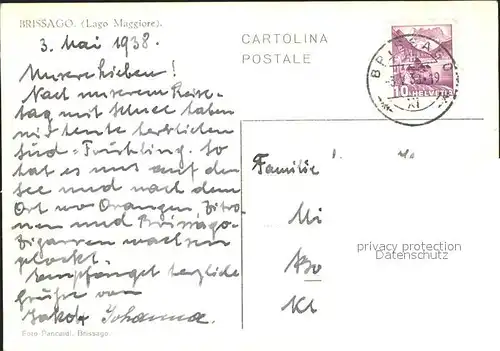 BRISSAGO. (Lago Maggiore).
3. Mai 1938.
CARTOLINA
POSTALE
BRISSAGO
10 HELVETIA
Unsere Lieben!
Nach unserem Reise-
tag mit Schnee haben
wir heute herrlichen
Süd-Frühling. So
hat es uns auf den
See und nach dem
Ort wo Orangen, Zitro-
nen und Brissago-
Zigarren wachsen
gelockt.
Empfanget herzliche
Grüsse von
Jakob Johanna.
Familie
Mi
Bo
Kl
privacy protection
Datenschutz
Foto Pancaldi, Brissago